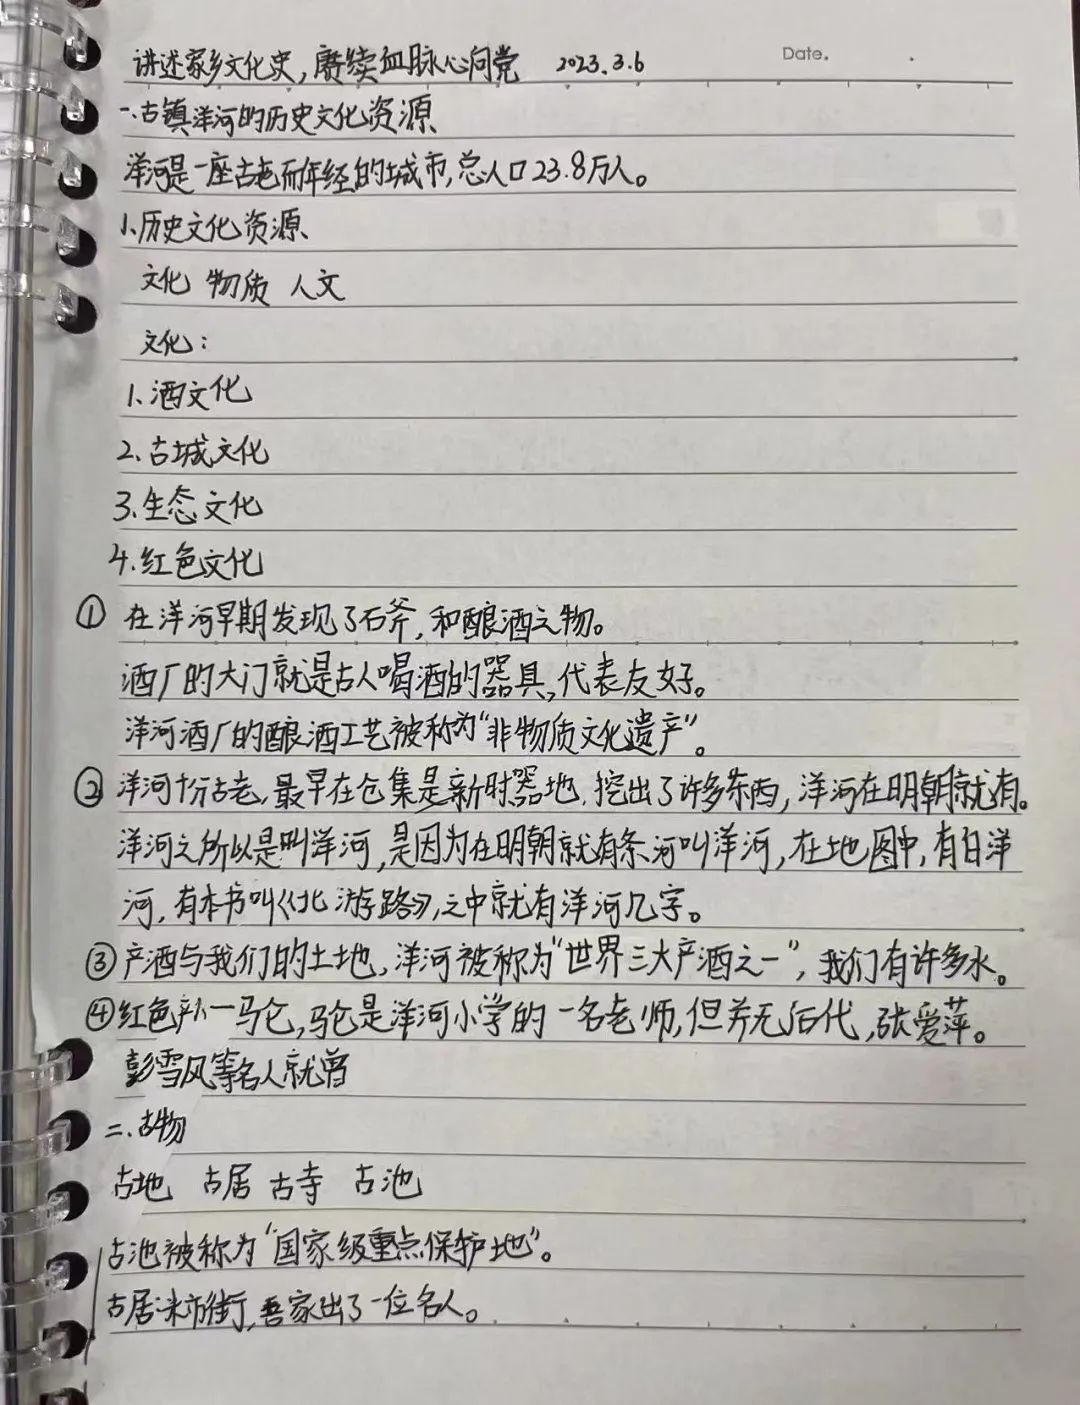 Date.
讲述家乡文化史,赓续血脉心向党 2023.3.6
一.古镇洋河的历史文化资源
洋河是一座古老而年经的城市,总人口23.8万人。
1.历史文化资源
文化 物质 人文
文化:
1.酒文化
2.古城文化
3.生态文化
4.红色文化
① 在洋河早期发现了石斧,和酿酒之物。
酒厂的大门就是古人喝酒的器具,代表友好。
洋河酒厂的酿酒工艺被称为“非物质文化遗产”。
② 洋河十份古老,最早在仓集是新时器地,挖出了许多东西,洋河在明朝就有。
洋河之所以是叫洋河,是因为在明朝就有条河叫洋河,在地图中,有白洋
河,有本书叫《北游路》,之中就有洋河几字。
③产酒与我们的土地,洋河被称为“世界三大产酒之一”,我们有许多水。
④红色 一马仑,马仑是洋河小学的一名老师,但并无后代,张爱萍。
彭雪风等名人就曾
二.古物
古地 古居 古寺 古池
古池被称为“国家级重点保护地”。
古居 街,吾家出了一位名人。